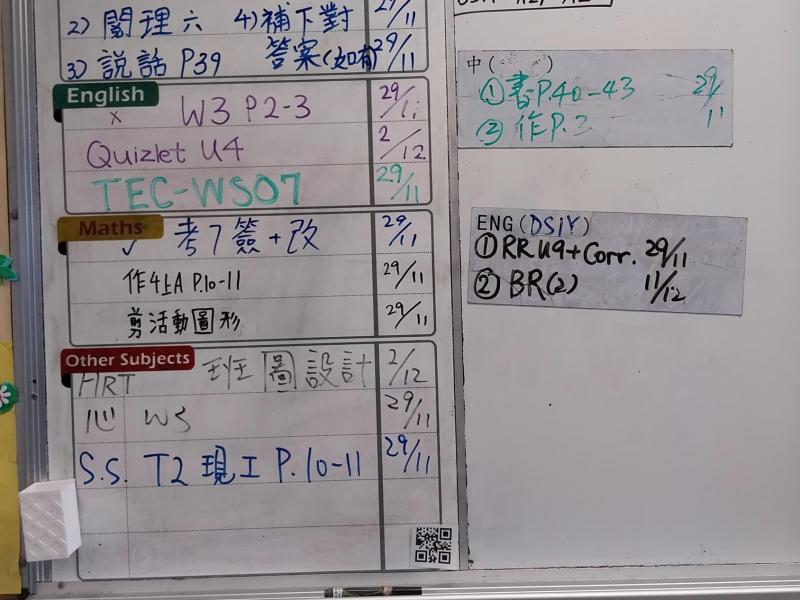 2) 閱理六 4) 補下對
3) 說話 P39 答案(如有) 29/11
English
W3 P2-3 29/11
Quizlet U4 2/12
TEC-WS07 29/11
Maths
✓ 考7簽+改 29/11
作4上A P.10-11 29/11
剪活動圖形 29/11
Other Subjects
HRT 班圖設計 2/12
心 WS 29/11
S.S. T2 現工 P.10-11 29/11
中(
①書P.40-43 29/11
②作P.3
ENG (DSiY)
①RR U9+Corr. 29/11
②BR(2) 11/12